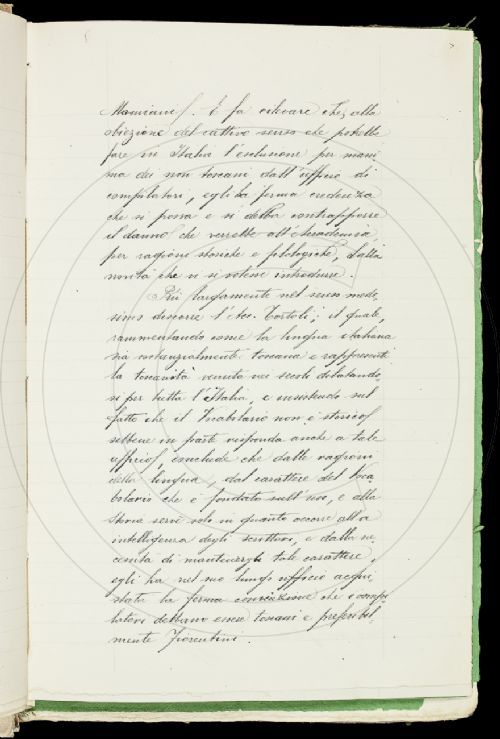 Mamiani/. E fa rilevare che, alla
obiezione del cattivo senso che potrebbe
fare in Italia l'esclusione per massi
ma dei non toscani dall'ufficio di
compilatori, egli ha ferma credenza
che si possa e si debba contrapporre
il danno che verrebbe all'Accademia
per ragioni storiche e filologiche, dalla
novità che vi si volesse introdurre.
Più largamente nel senso mede
simo discorre l'Acc. Tortoli; il quale,
rammentando come la lingua italiana
sia sostanzialmente toscana e rappresenti
la toscanità venuta nei secoli dilatando
si per tutta l'Italia, e insistendo sul
fatto che il Vocabolario non è storico/
sebbene in parte risponda anche a tale
ufficio/, conclude che dalle ragioni
della lingua, dal carattere del Voca
bolario che è fondato sull'uso, e alla
storia serve solo in quanto occorre alla
intelligenza degli scrittori, e dalla ne
cessità di mantenergli tale carattere,
egli ha nel suo lungo ufficio acqui
stata la ferma convinzione che i compi
latori debbano essere toscani e preferibil
mente fiorentini.